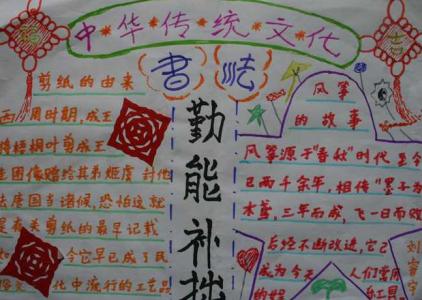 福
中华传统文化
吉
書法
剪纸的由来
西周时期,成王
将梧桐叶剪成玉
圭图像赠给其弟姬虞 封他
去唐国当诸侯,恐怕这就
是有关剪纸的最早记载
今它早已成了民
化中流行的工艺品
勤能补拙
风筝
的故事
风筝源于"春秋"时代 至今
已两千余年,相传"墨子为
木鸢,三年而成,飞一日而败
后经不断改进,它已
成为今天 人们常用
的娱 工具